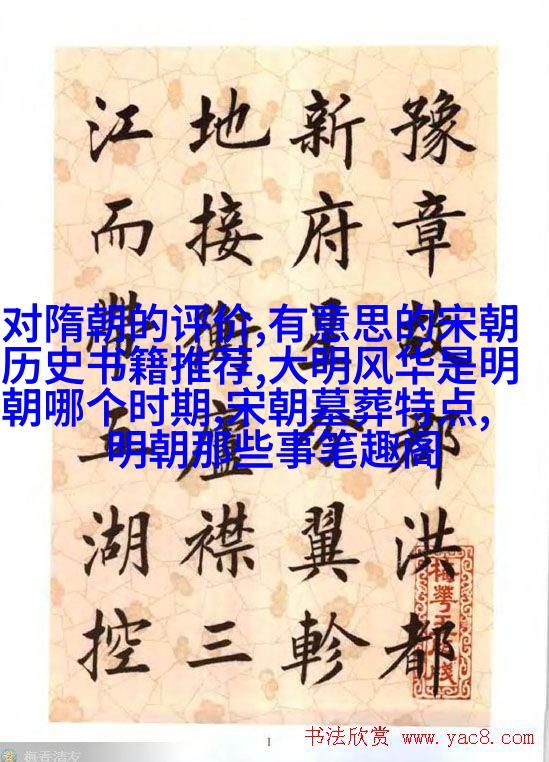 豫章故都洪都
新府星分翼軫
地接衡廬襟三
江而帶五湖控
对隋朝的评价,有意思的宋朝
历史书籍推荐,大明风华是明
朝哪个时期,宋朝墓葬特点,
明朝那些事笔趣阁
1
书法欣赏 www.yac8.com